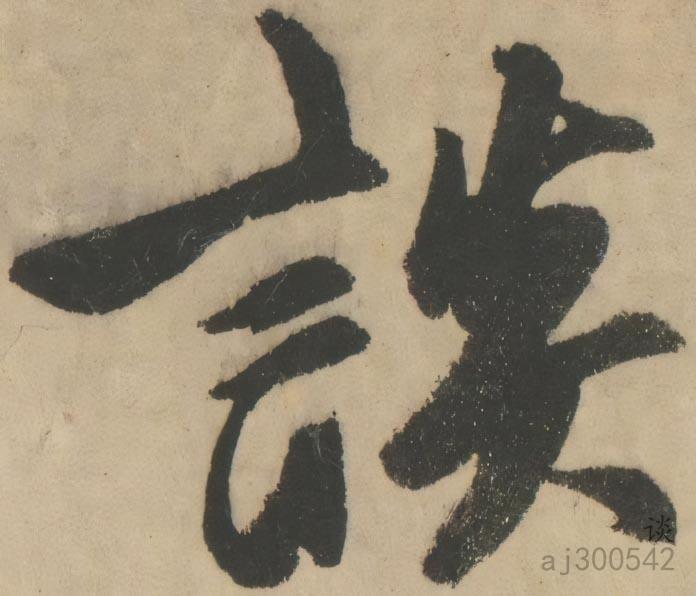 談
谈
aj300542